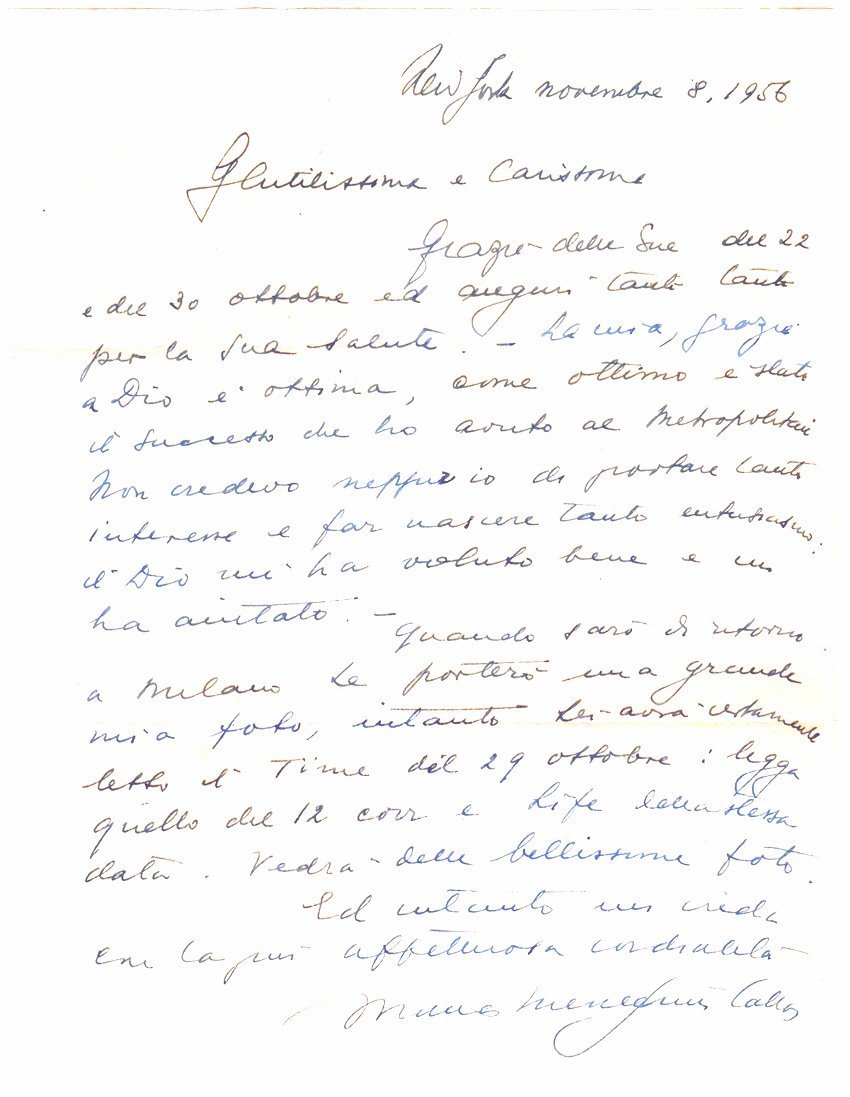 New York novembre 8, 1956
Gentilissima e Carissima
Grazie delle Sue del 22
e del 30 ottobre ed auguri tanti tanti
per la Sua Salute. – La mia, grazie
a Dio e' ottima, come ottimo e' stato
il successo che ho avuto al Metropolitan
Non credevo neppur io di portare tanto
interesse e far nascere tanto entusiasmo:
il Dio mi ha voluto bene e mi
ha aiutato. –
Quando sarò di ritorno
a Milano Le porterò una grande
mia foto, intanto Lei avrà certamente
letto il Time del 29 ottobre: legga
quello del 12 corr e Life della stessa
data. Vedrà delle bellissime foto.
Ed intanto mi creda
con la più affettuosa cordialità
Maria Meneghini Callas